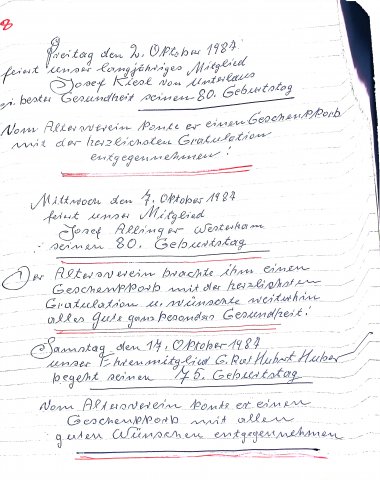 8
Freitag den 2. Oktober 1987
feiert unser langjähriges Mitglied
Josef Kiesl von Unterlaus
i. bester Gesundheit seinen 80. Geburtstag
Vom Altersverein konte er einen Geschenkkorb
mit der herzlichsten Gratulation
entgegennehmen!
Mittwoch den 7. Oktober 1987
feiert unser Mitglied
Josef Allinger Westerham
seinen 80. Geburtstag
Der Altersverein brachte ihm einen
Geschenkkorb mit der herzlichsten
Gratulation u. wünschte weiterhin
alles Gute ganz besonders Gesundheit.
Samstag den 17. Oktober 1987
unser Ehrenmitglied G. Rat Hubert Huber
begeht seinen 75. Geburtstag
Vom Altersverein konte er einen
Geschenkkorb mit allen
guten Wünschen entgegennehmen